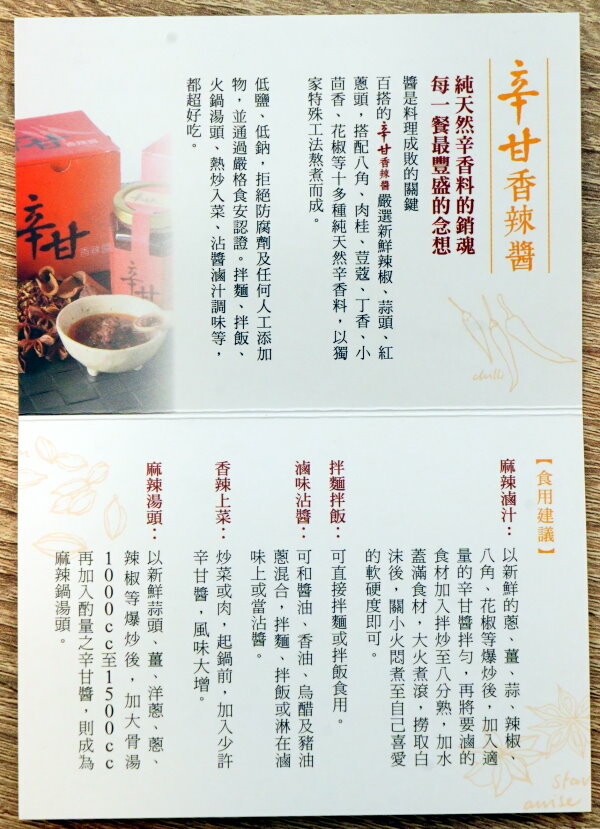 辛甘香辣醬
純天然辛香料的銷魂
每一餐最豐盛的念想
醬是料理成敗的關鍵
百搭的辛甘香辣醬嚴選新鮮辣椒、蒜頭、紅
蔥頭，搭配八角、肉桂、荳蔻、丁香、小
茴香、花椒等十多種純天然辛香料，以獨
家特殊工法熬煮而成。
低鹽、低鈉，拒絕防腐劑及任何人工添加
物，並通過嚴格食安認證。拌麵、拌飯、
火鍋湯頭、熱炒入菜、沾醬滷汁調味等，
都超好吃。
辛甘
香辣醬
辛甘
香辣醬
辛甘
chilli
【食用建議】
麻辣滷汁：以新鮮的蔥、薑、蒜、辣椒、
八角、花椒等爆炒後，加入適
量的辛甘醬拌勻，再將要滷的
食材加入拌炒至八分熟，加水
蓋滿食材，大火煮滾，撈取白
沫後，關小火悶煮至自己喜愛
的軟硬度即可。
拌麵拌飯：可直接拌麵或拌飯食用。
滷味沾醬：可和醬油、香油、烏醋及豬油
蔥混合，拌麵、拌飯或淋在滷
味上或當沾醬。
香辣上菜：炒菜或肉，起鍋前，加入少許
辛甘醬，風味大增。
麻辣湯頭：以新鮮蒜頭、薑、洋蔥、蔥、
辣椒等爆炒後，加大骨湯
1000cc至1500cc
再加入酌量之辛甘醬，則成為
麻辣鍋湯頭。
star
anise